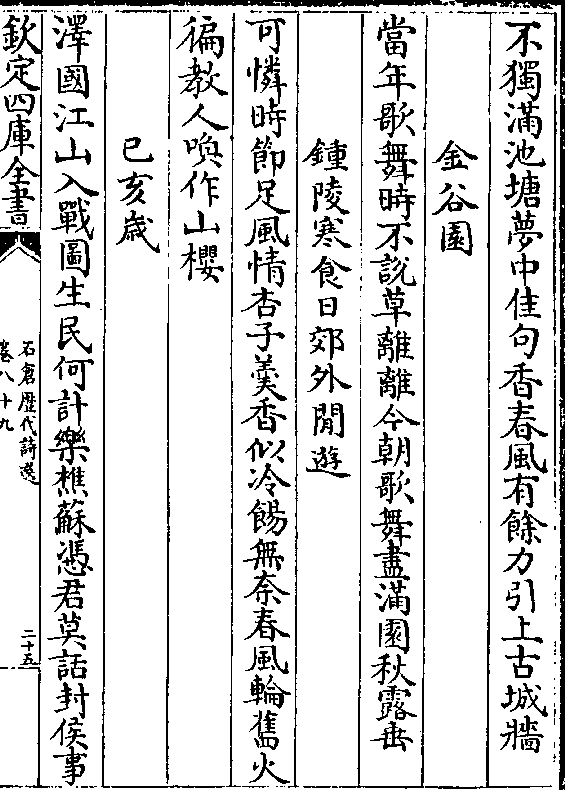 不獨滿池塘夢中佳句香春風有餘力引上古城牆
金谷園
當年歌舞時不說草離離今朝歌舞盡滿園秋露垂
鍾陵寒食日郊外閒遊
可憐時節足風情杏子羹香似冷餳無奈春風輪舊火
徧教人喚作山櫻
己亥歲
澤國江山入戰圖生民何計樂樵蘇憑君莫話封侯事
欽定四庫全書
石倉歷代詩選
卷八十九
二十五